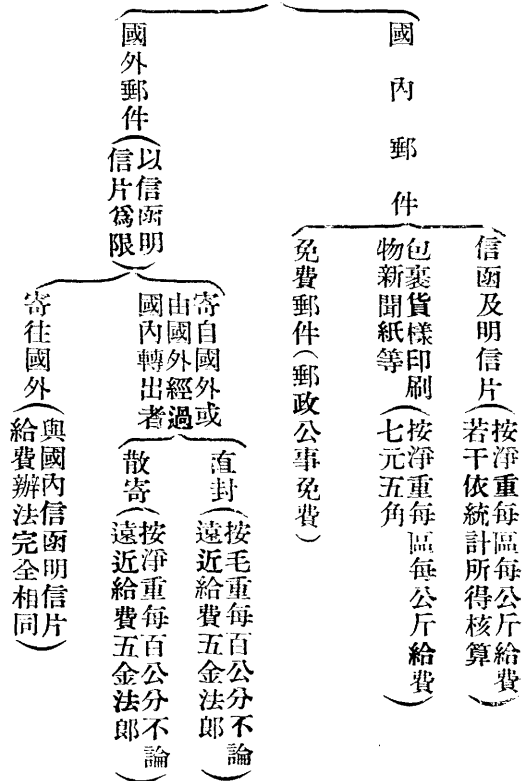 國內郵件
信函及明信片
（按淨重每區每公斤給費
若干依統計所得核算）
包裹貨樣印刷
物新聞紙等
（按淨重每區每公斤給費
七元五角）
免費郵件（郵政公事免費）
國外郵件
（以信函明
信片爲限）
寄自國外或
由國外經過
國內轉出者
直封
（按毛重每百公分不論
遠近給費五金法郎）
散寄
（按淨重每百公分不論
遠近給費五金法郎）
寄往國外
（與國內信函明信片
給費辦法完全相同）